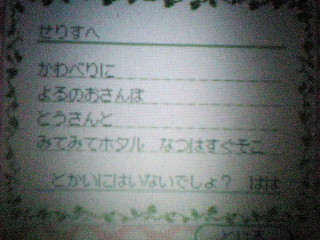 せりすへ
かわべりに
よるのおさんぽ
とうさんと
みてみてホタル　なつはすぐそこ
とかいにはいないでしょ？　はは
とじる